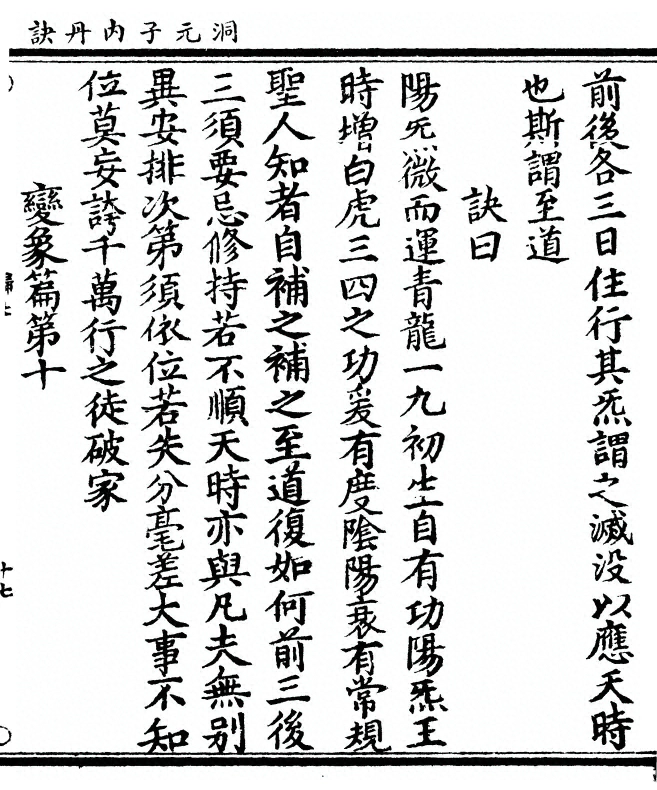 洞元子内丹訣
前後各三日住行其炁謂之滅没以應天時
也斯謂至道
訣曰
陽炁微而運青龍一九初生自有功陽炁王
時增白虎三四之功爰有度陰陽衰有常規
聖人知者自補之補之至道復如何前三後
三須要忌修持若不順天時亦與凡夫無别
異安排次第須依位若失分毫差大事不知
位莫妄誇千萬行之徒破家
變象篇第十
十七